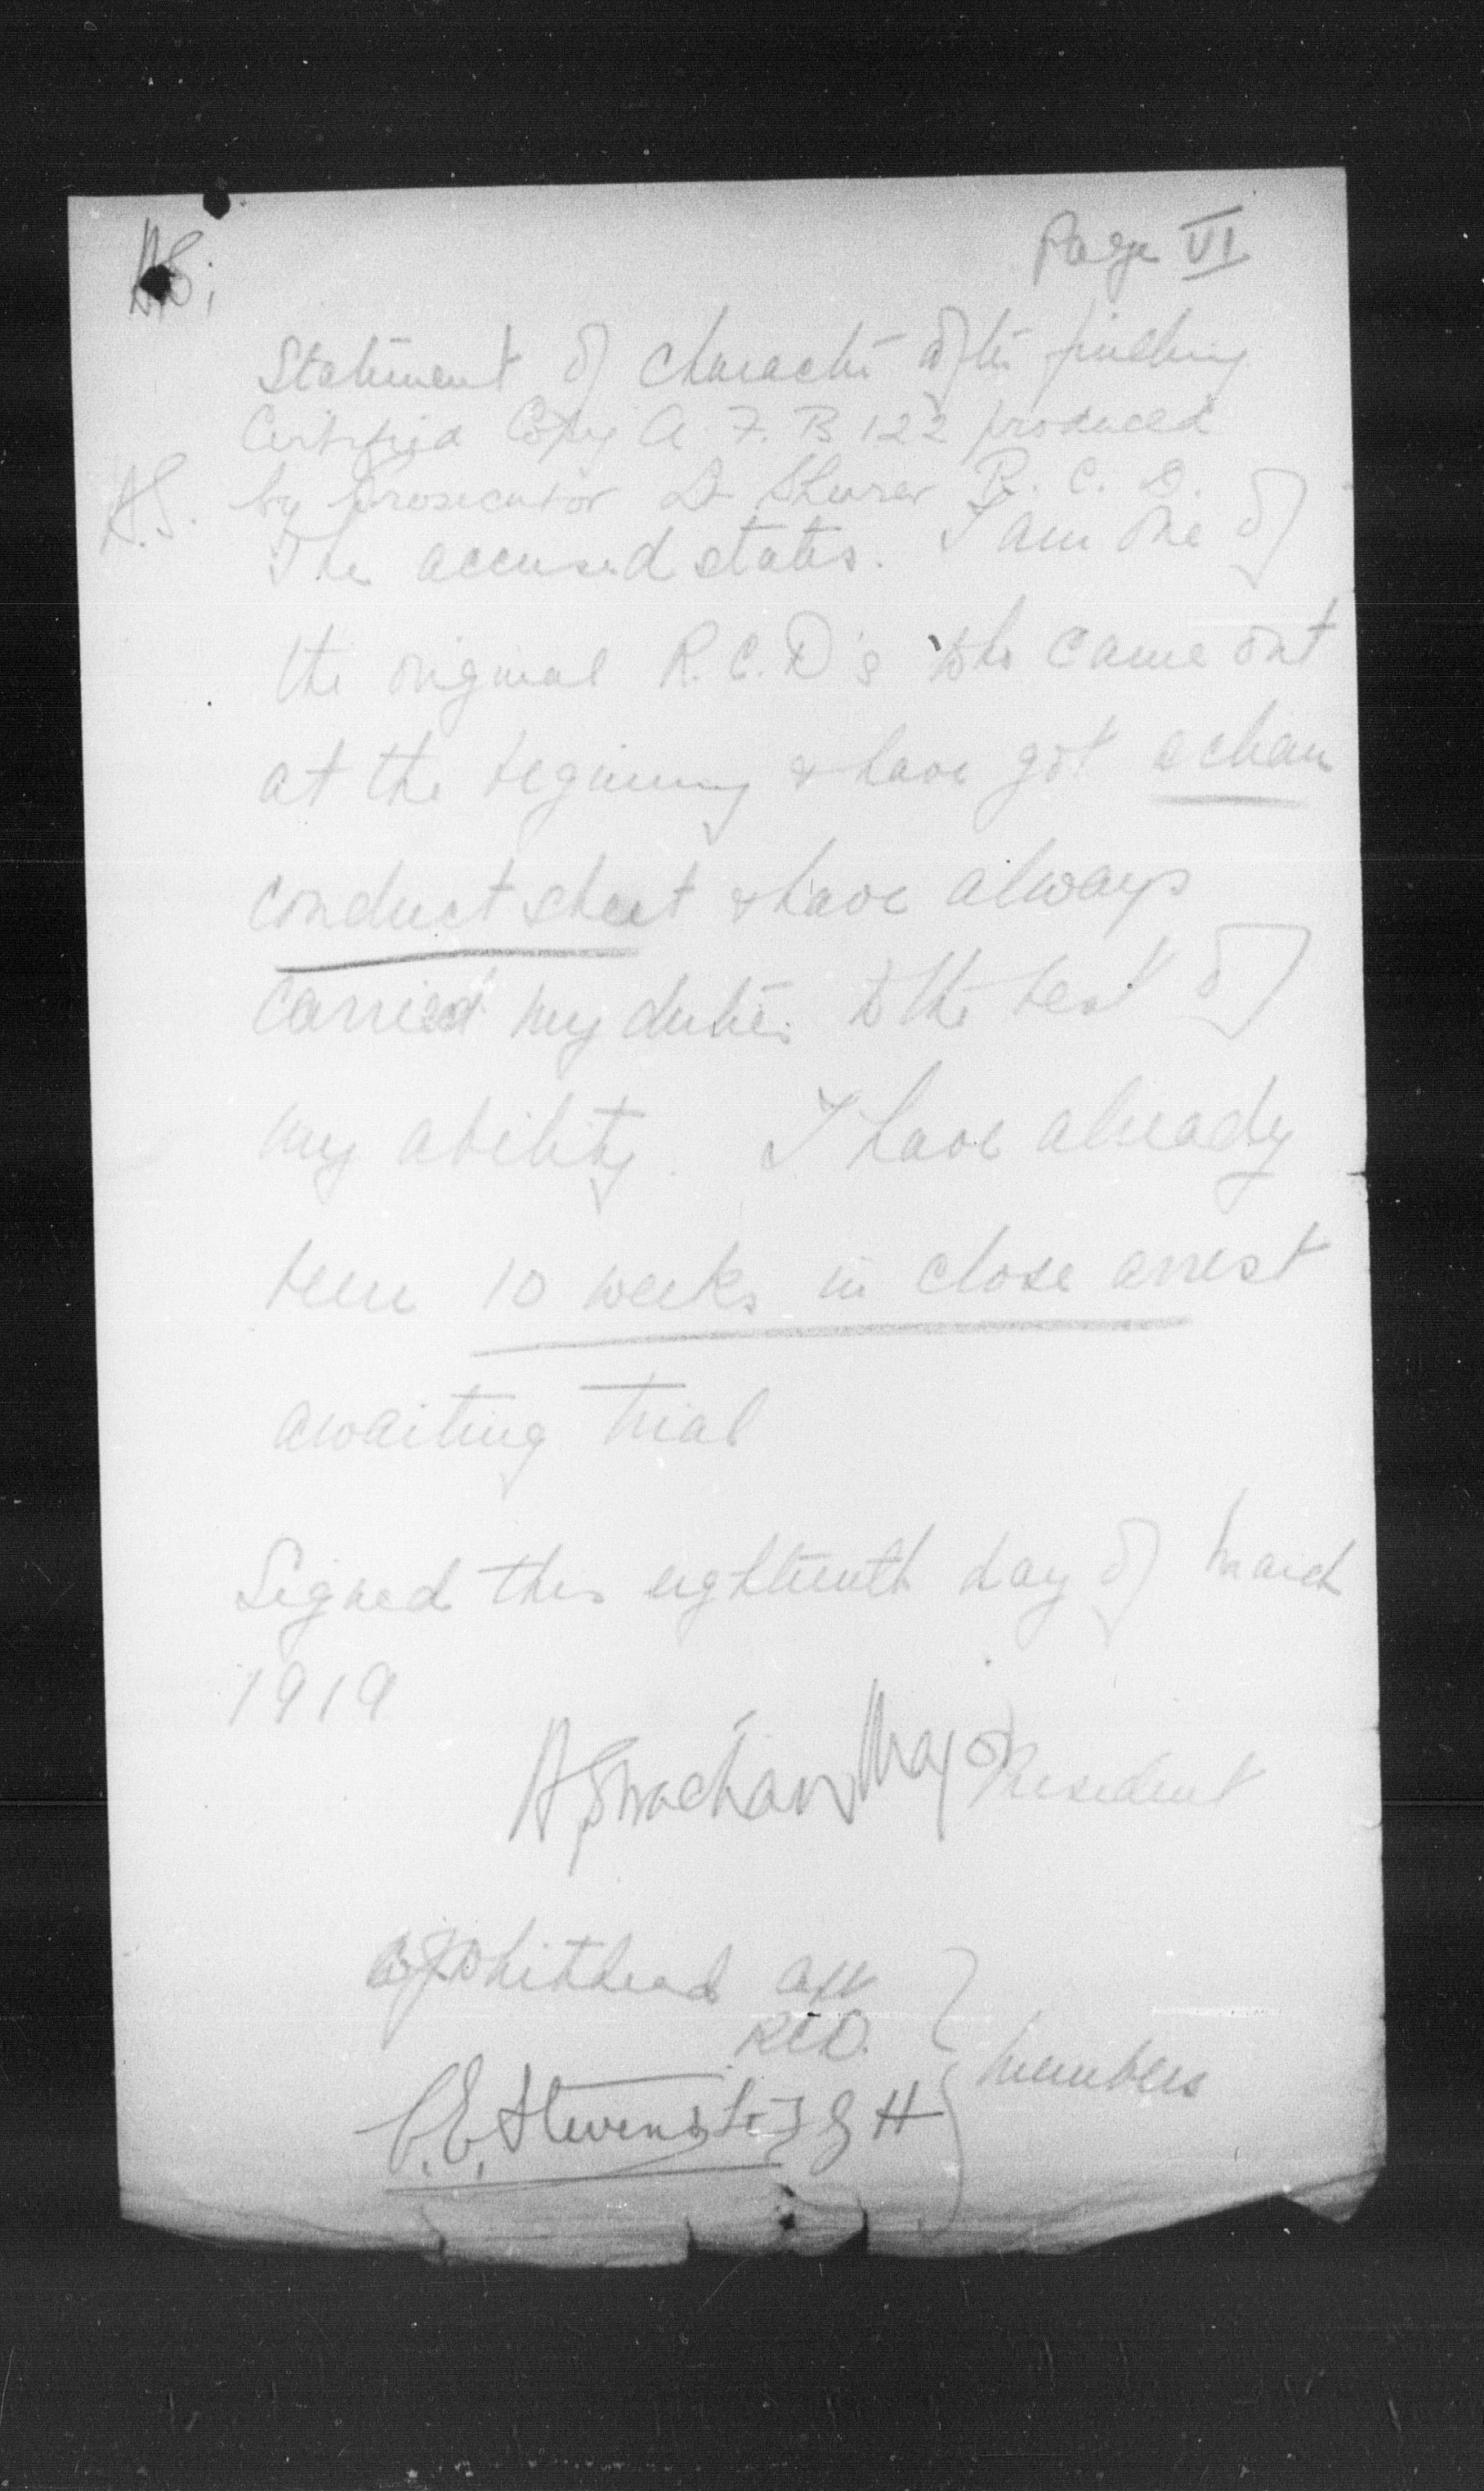 Page VI
A.S.
Statement of character after finding
Certified Copy A. F. B 122 produced
A.S. by Prosecutor Lt R. C. D.
The accused states. I am one of
the original R.C.D's who came out
at the beginning & have got a clean
conduct sheet & have always
carried my duties to the best of
my ability. I have already
been 10 weeks in close arrest
awaiting trial
Signed this eighteenth day of March
1919
A Strachan Major President
Whitehead
RCD.
members
C.E. Stevens Lt F G H